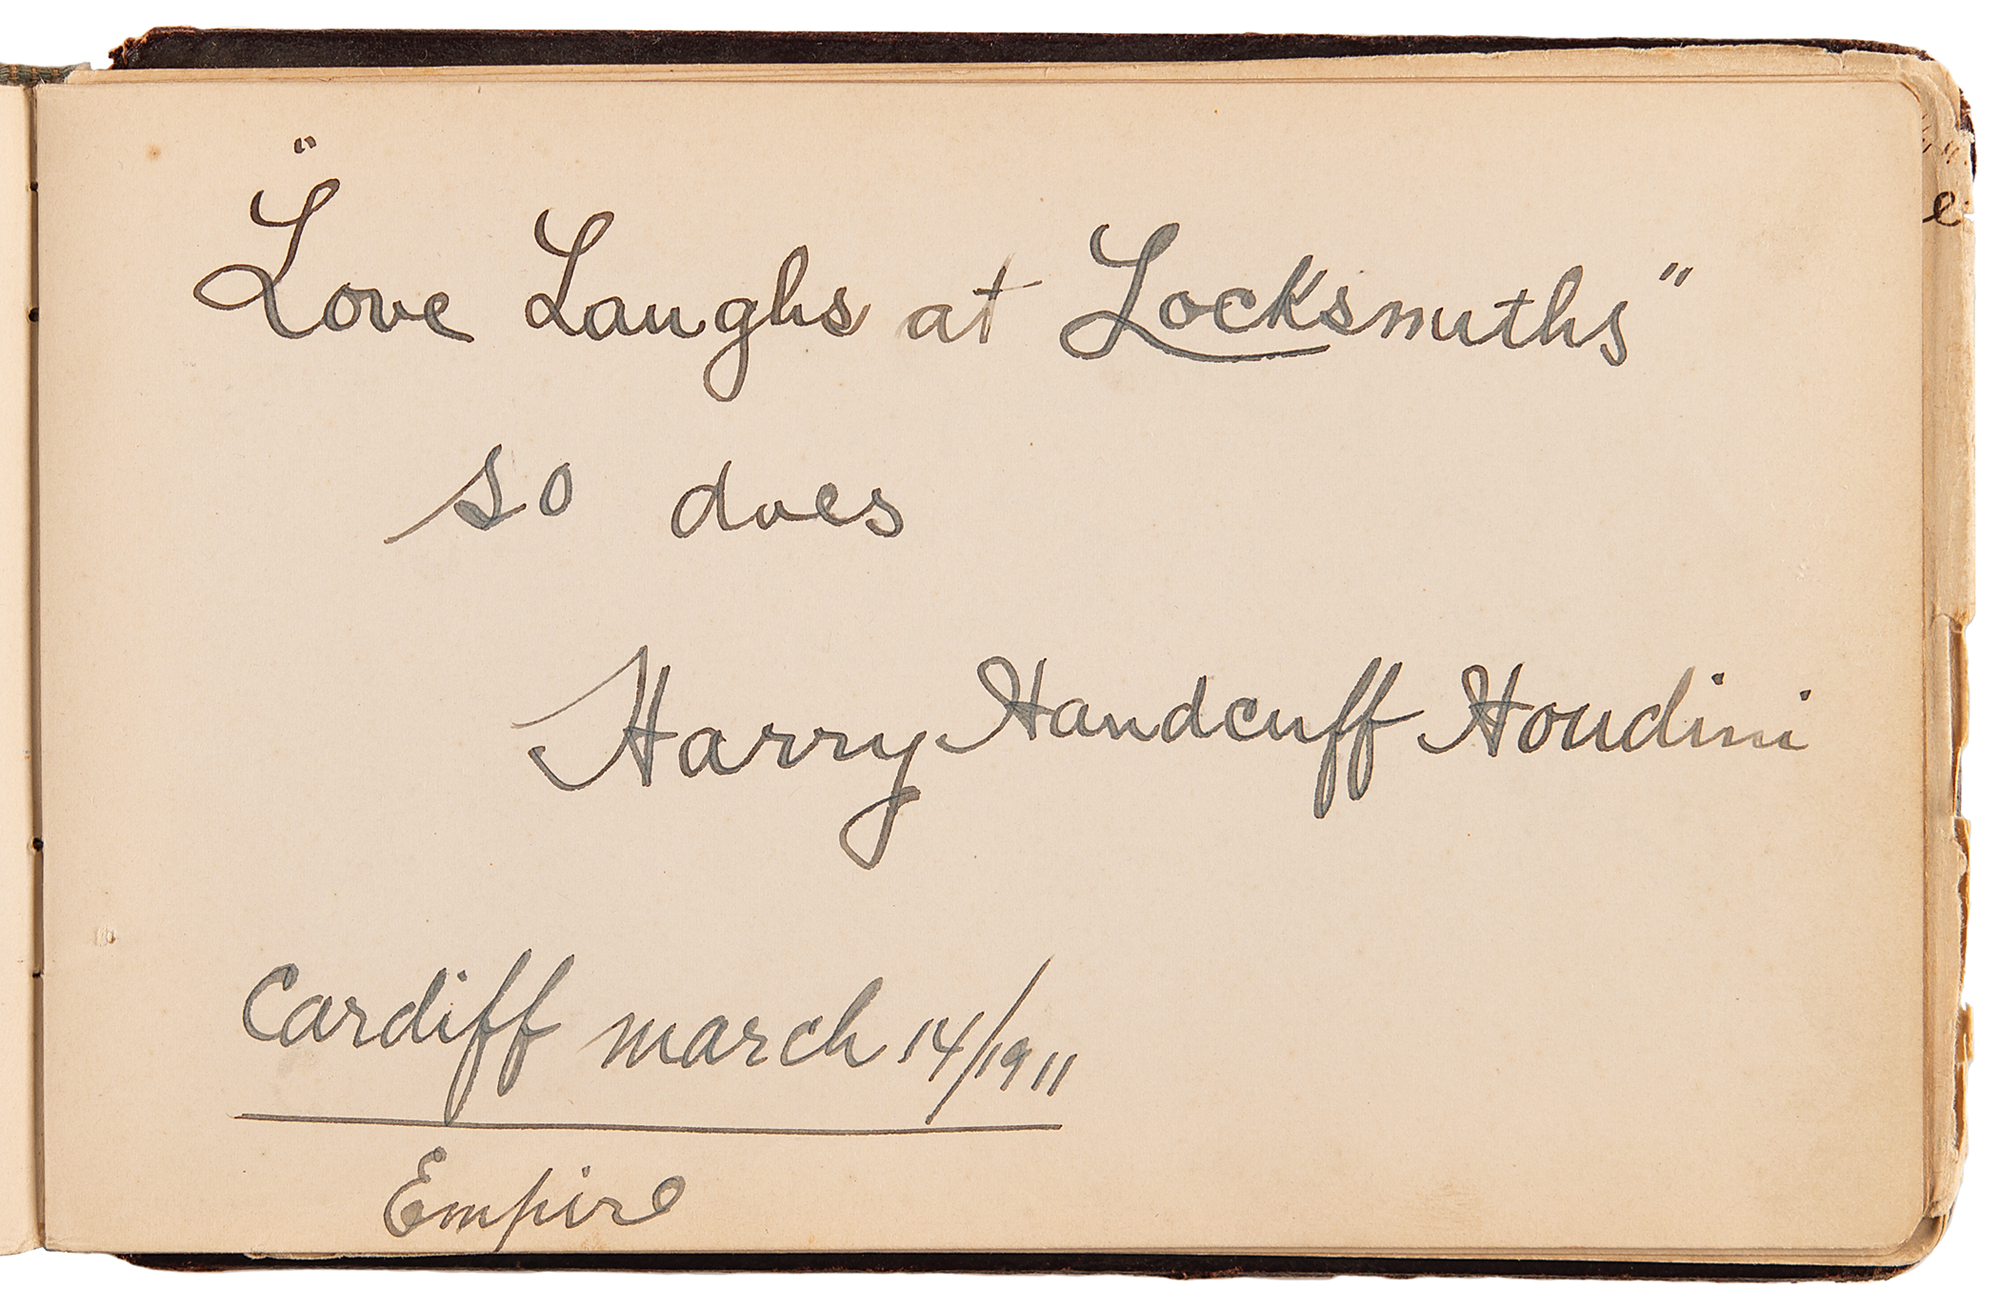 "Love Laughs at Locksmiths"
so does
Harry Handcuff Houdini
Cardiff march 14/1911
Empire
e